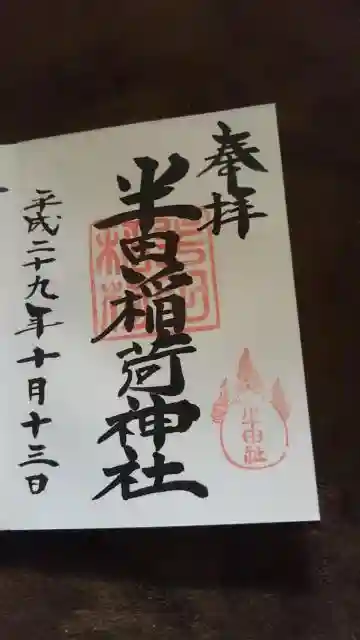 奉拝
半田稲荷神社
平成二十九年十月十三日
半田社